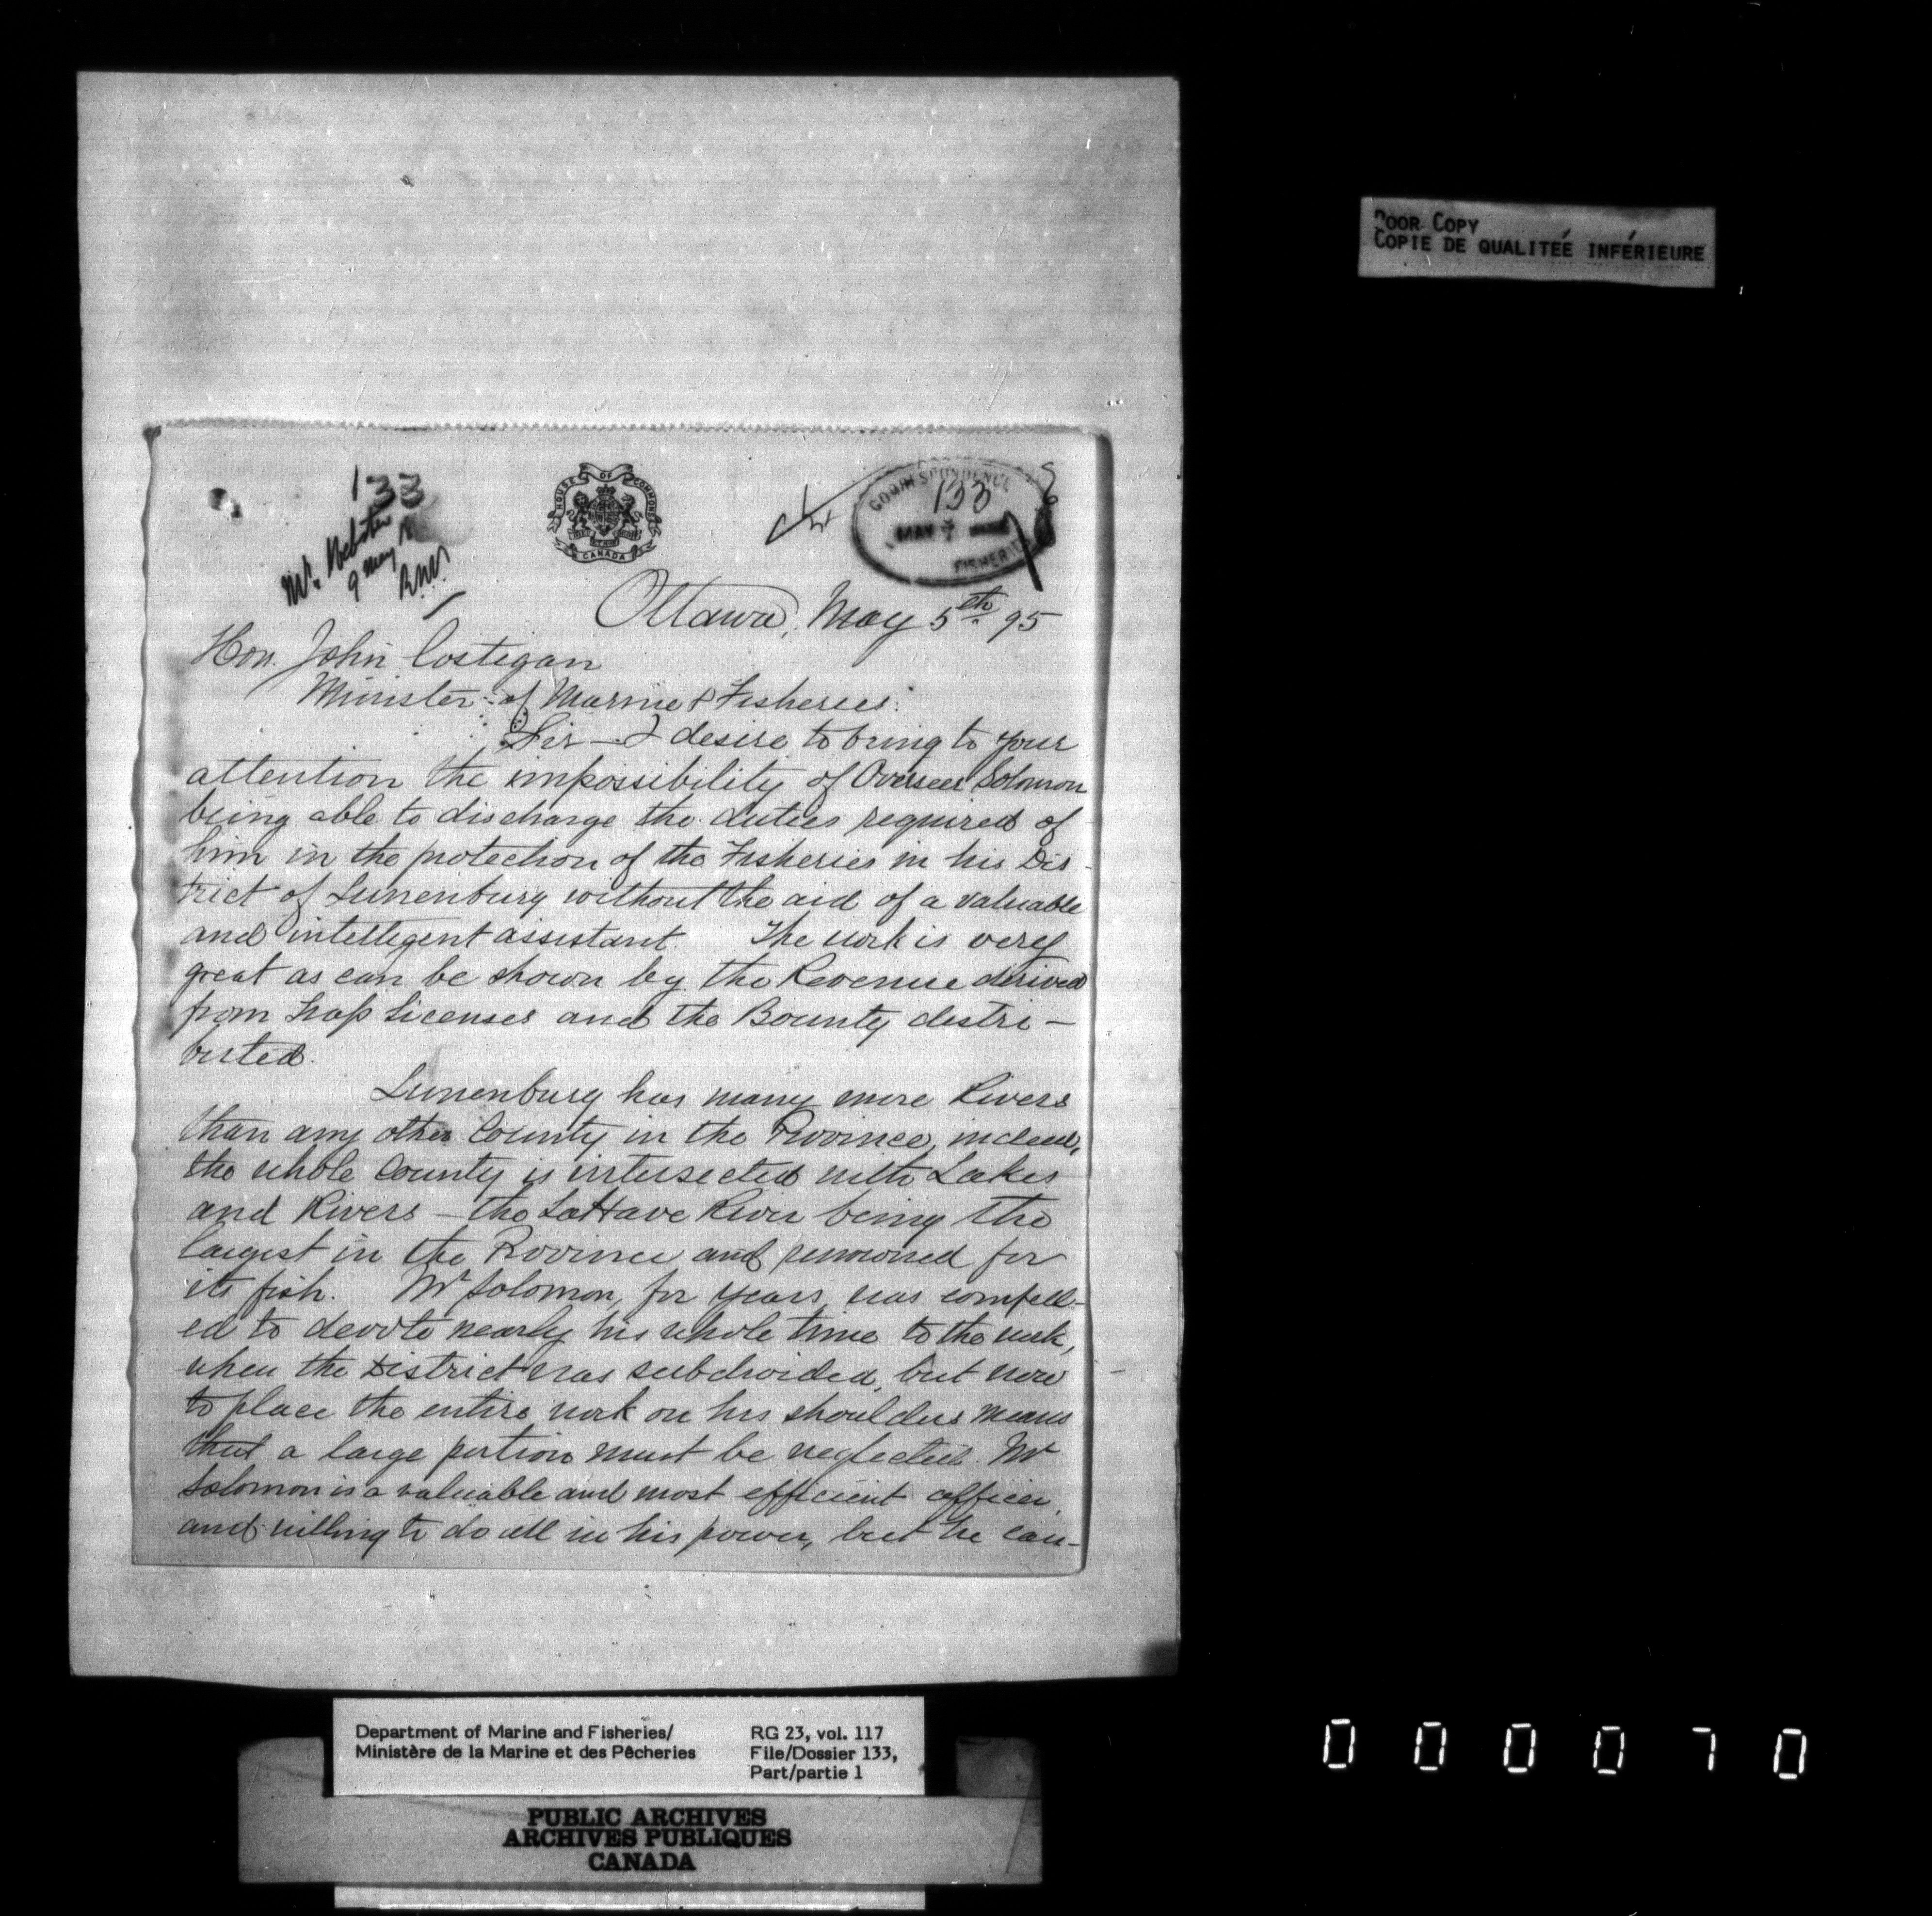 POOR COPY
COPIE DE QUALITÉE INFÉRIEURE
133
Mr. Webster
9 May
R.N.V.
HOUSE OF COMMONS
CANADA
CORRESPONDENCE
133
MAY 7
FISHERIES
Ottawa, May 5th 95
Hon. John Costegan
Minister of Marine & Fisheries:
Sir — I desire to bring to your
attention the impossibility of Overseer Solomon
being able to discharge the duties required of
him in the protection of the Fisheries in his Dis-
trict of Lunenburg without the aid of a valuable
and intelligent assistant. The work is very
great as can be shown by the Revenue derived
from Trap Licenses and the Bounty distri-
buted.
Lunenburg has many more Rivers
than any other County in the Province, indeed,
the whole County is intersected with Lakes
and Rivers — the LaHave River being the
largest in the Province and renowned for
its fish. Mr Solomon, for years was compell-
ed to devote nearly his whole time to the work,
when the District was subdivided, but now
to place the entire work on his shoulders means
that a large portion must be neglected. Mr
Solomon is a valuable and most efficient officer,
and willing to do all in his power, but he can-
Department of Marine and Fisheries/
Ministère de la Marine et des Pêcheries
RG 23, vol. 117
File/Dossier 133,
Part/partie 1
PUBLIC ARCHIVES
ARCHIVES PUBLIQUES
CANADA
000070